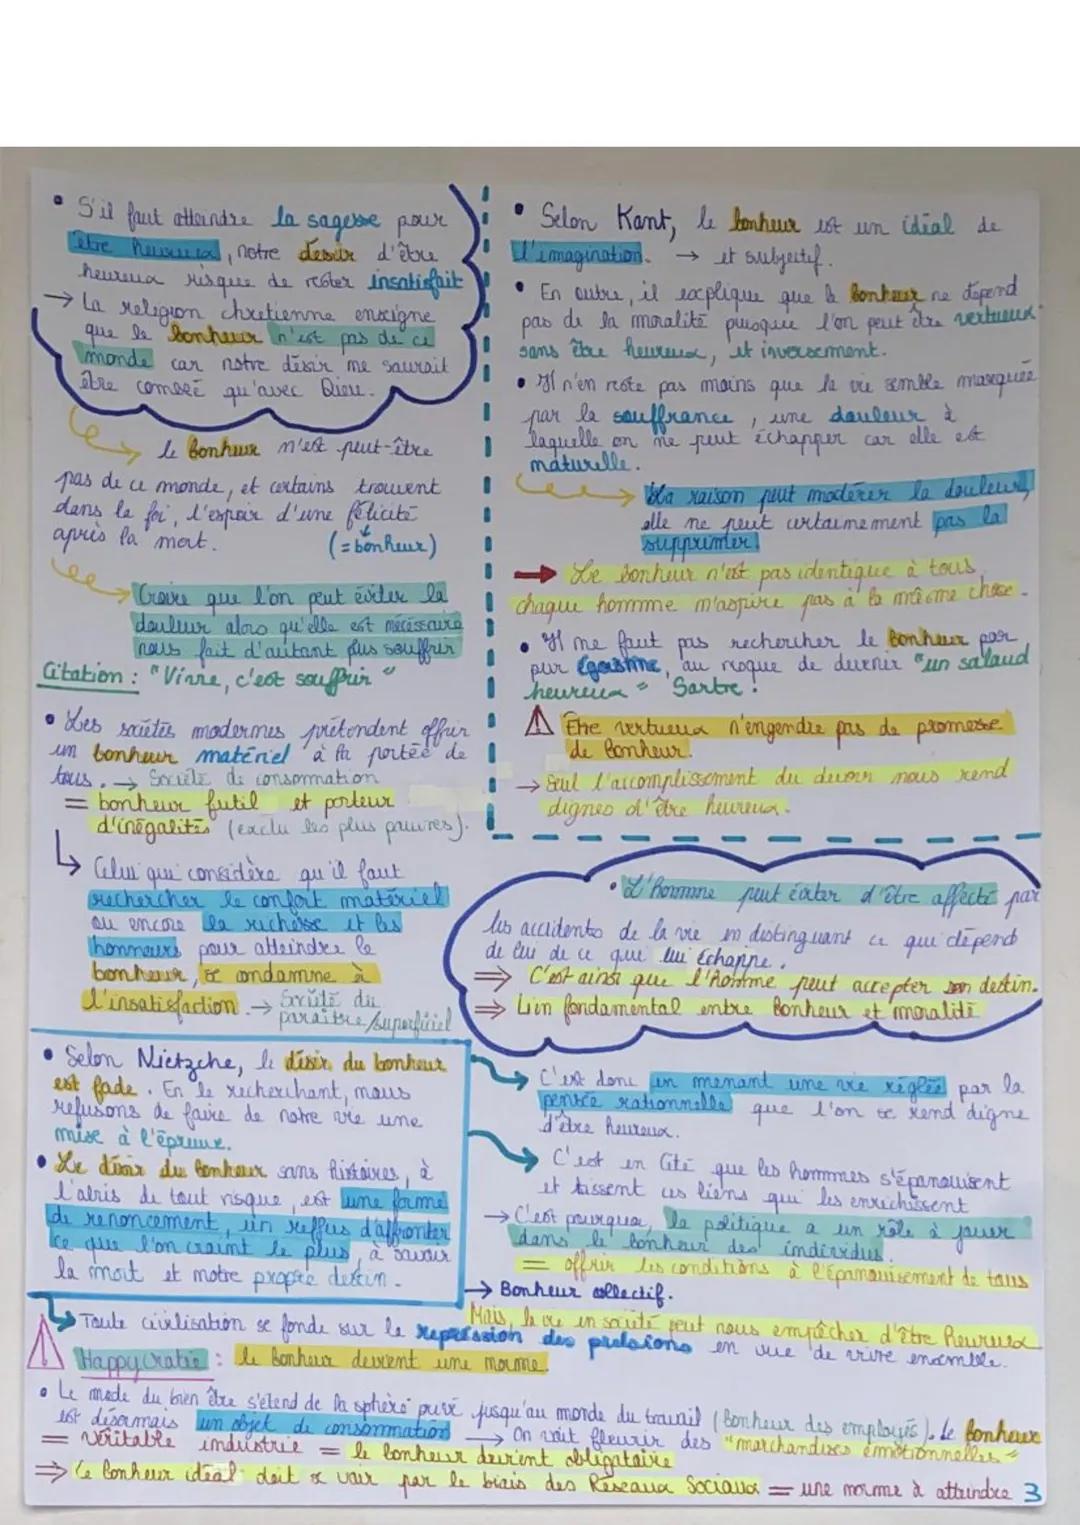 • S'il faut atteindre la sagesse pour
être heureux, notre désir d'être
heureux risque de rester insatisfait
→ La religion chrétienne enseigne
que le bonheur n'est pas de ce
monde car notre désir ne saurait
être comblé qu'avec Dieu.
le bonheur n'est peut-être
pas de ce monde, et certains trouvent
dans la foi, l'espoir d'une félicité
après la mort. (= bonheur)
Croire que l'on peut éviter la
douleur alors qu'elle est nécessaire
nous fait d'autant plus souffrir
Citation : "Vivre, c'est souffrir"
• Les sociétés modernes prétendent offrir
un bonheur matériel à la portée de
tous. → Société de consommation
= bonheur futil et porteur
d'inégalités (exclu les plus pauvres).
↳ Celui qui considère qu'il faut
rechercher le confort matériel
ou encore la richesse et les
honneurs pour atteindre le
bonheur, se condamne à
l'insatisfaction. → Société du
paraître/superficiel
• Selon Nietzche, le désir du bonheur
est fade. En le recherchant, nous
refusons de faire de notre vie une
mise à l'épreuve.
• Le désir du bonheur sans histoires, à
l'abris de tout risque, est une forme
de renoncement, un reffus d'affronter
ce que l'on craint le plus, à savoir
la mort et notre propre destin.
• Selon Kant, le bonheur est un idéal de
l'imagination. → et subjectif.
• En outre, il explique que le bonheur ne dépend
pas de la moralité puisque l'on peut être vertueux
sans être heureux, et inversement.
• Il n'en reste pas moins que la vie semble marquée
par la souffrance, une douleur à
laquelle on ne peut échapper car elle est
naturelle.
La raison peut modérer la douleur,
elle ne peut certainement pas la
supprimer.
→ Le bonheur n'est pas identique à tous,
chaque homme n'aspire pas à la même chose.
• Il ne faut pas rechercher le bonheur par
pur égoïsme, au risque de devenir "un salaud
heureux" Sartre.
⚠ Être vertueux n'engendre pas de promesse
de bonheur.
→ Seul l'accomplissement du devoir nous rend
dignes d'être heureux.
• L'homme peut éviter d'être affecté par
les accidents de la vie en distinguant ce qui dépend
de lui de ce qui lui échappe.
⇒ C'est ainsi que l'homme peut accepter son destin.
⇒ Lien fondamental entre Bonheur et moralité
→ C'est donc en menant une vie réglée par la
pensée rationnelle que l'on se rend digne
d'être heureux.
→ C'est en Cité que les hommes s'épanouissent
et tissent ces liens qui les enrichissent
→ C'est pourquoi, la politique a un rôle à jouer
dans le bonheur des individus.
= offrir les conditions à l'épanouissement de tous
→ Bonheur collectif.
Mais, la vie en société peut nous empêcher d'être heureux
→ Toute civilisation se fonde sur la repression des pulsions en vue de vivre ensemble.
⚠ Happycratie : le bonheur devient une norme.
• Le mode du bien être s'étend de la sphère privé jusqu'au monde du travail (Bonheur des employés). Le Bonheur
est désormais un objet de consommation → On voit fleurir des "marchandises émotionnelles"
= véritable industrie = le bonheur devient obligatoire
⇒ Ce bonheur idéal doit se voir par le biais des Réseaux Sociaux = une norme à atteindre 3